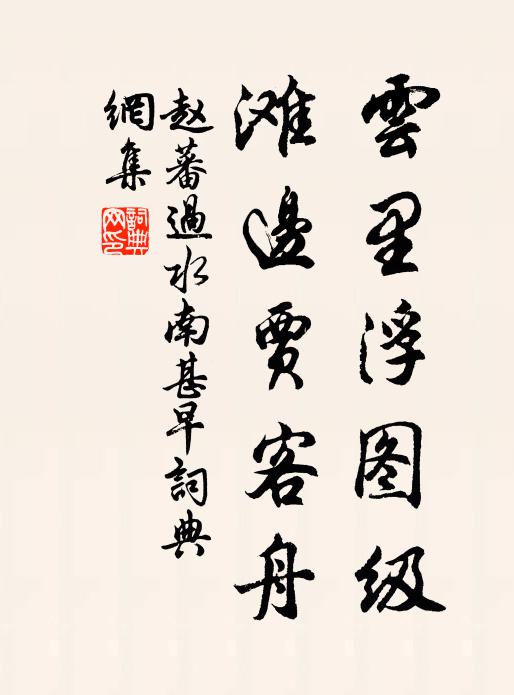 雲里浮图级
滩邊賈客舟
赵蕃過水南甚早詞典
網集
詞典
网印